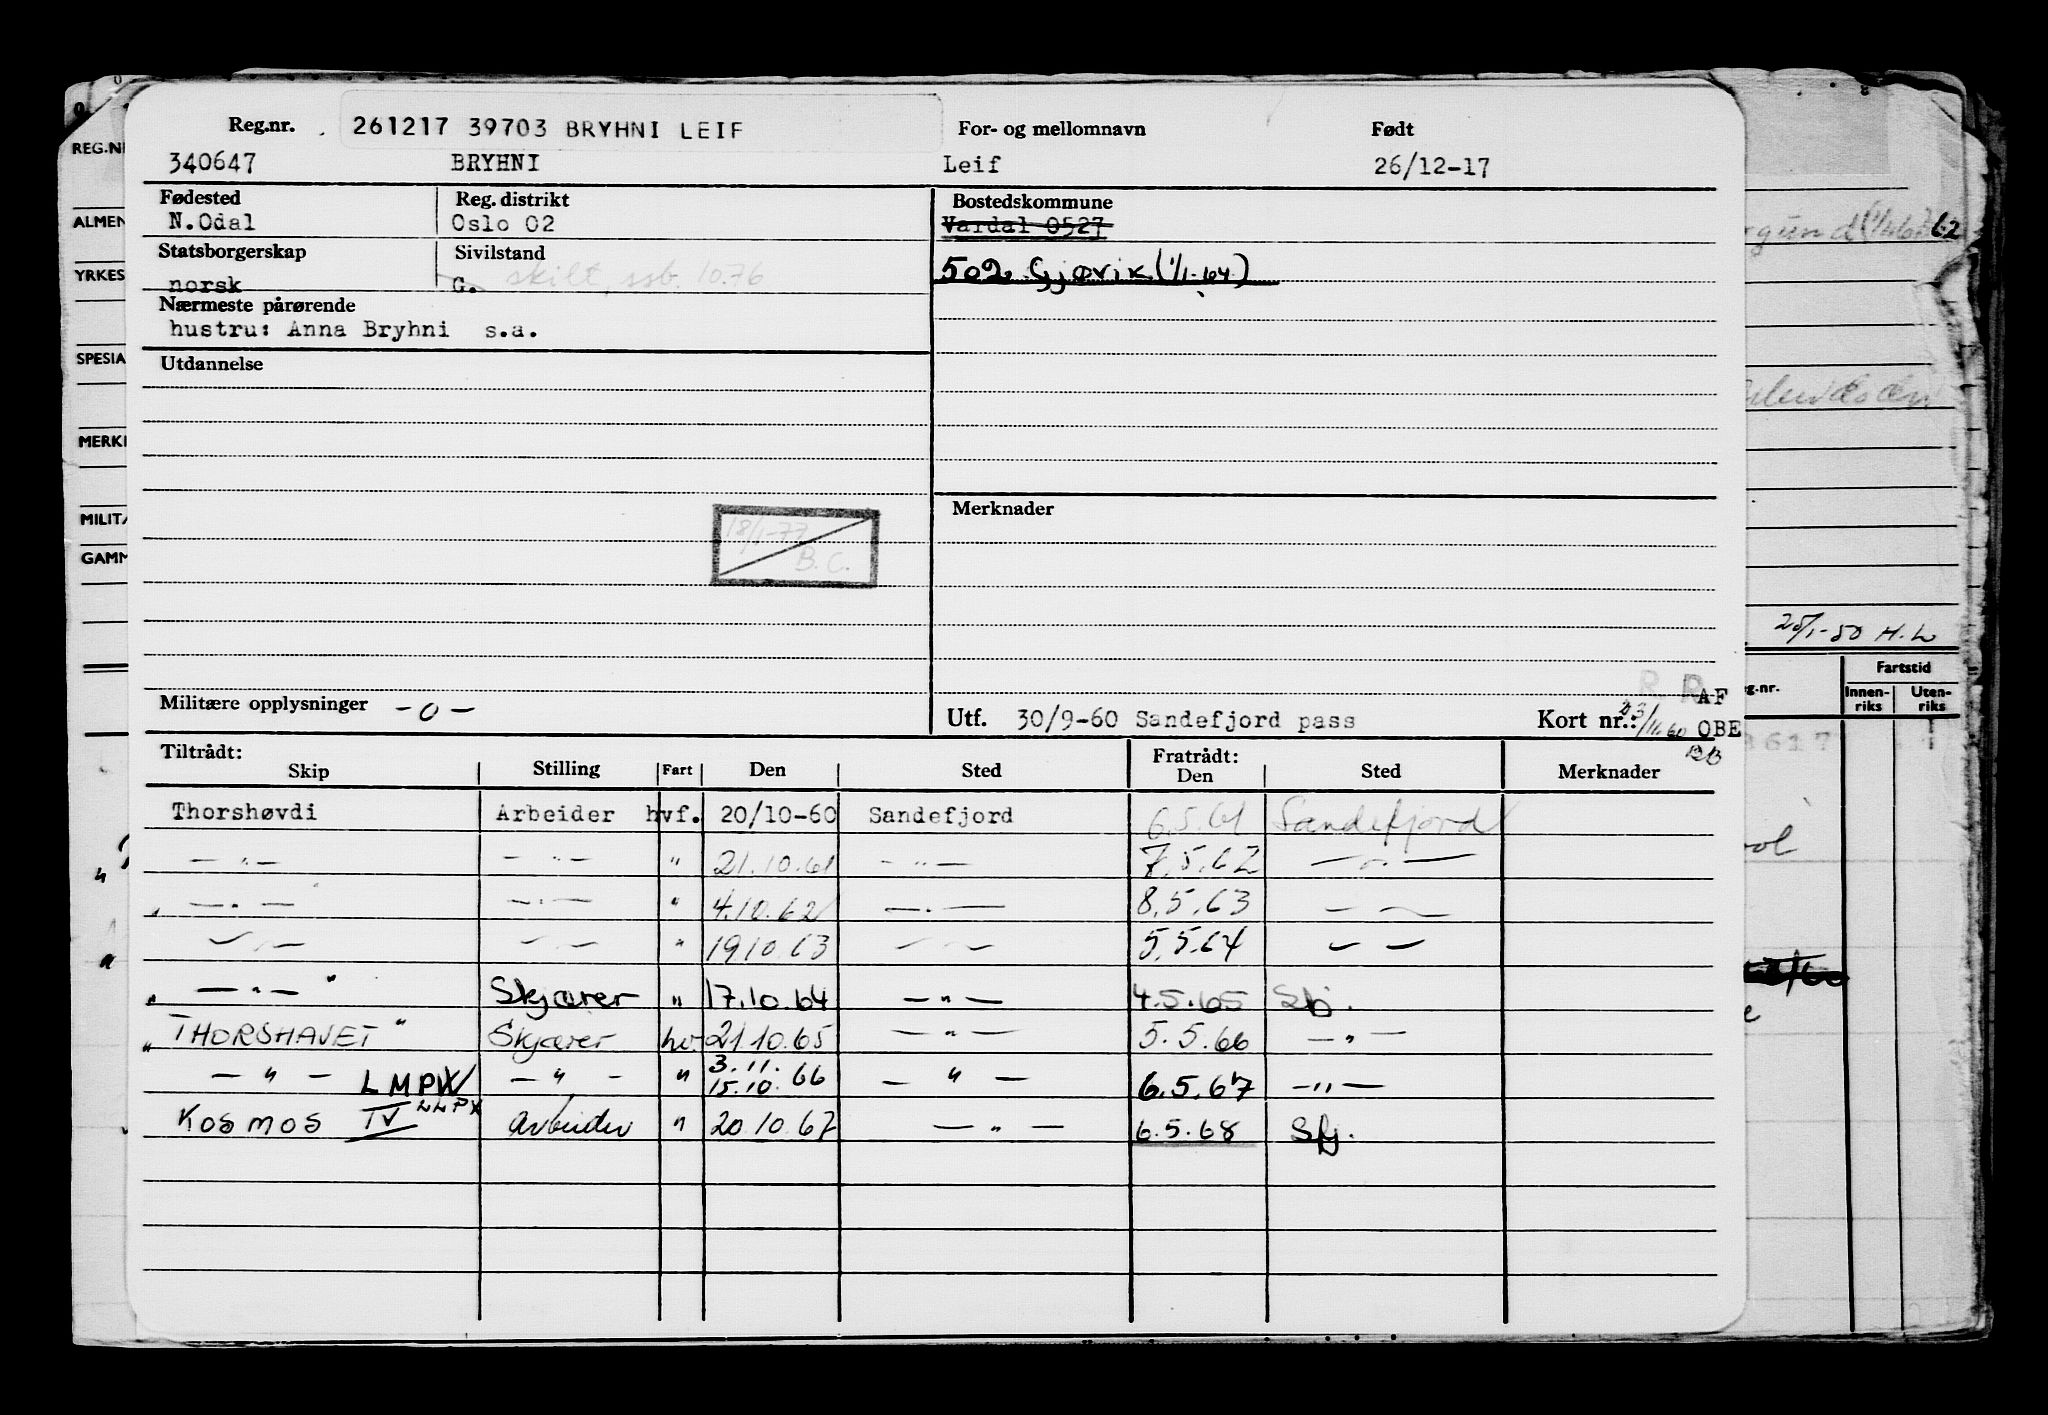 Reg.nr. 261217 39703 BRYHNI LEIF For- og mellomnavn Født
340647 BRYHNI Leif 26/12-17
Fødested Reg. distrikt Bostedskommune
N.Odal Oslo 02 Vardal 0527
Statsborgerskap Sivilstand
norsk G. skilt ssb. 10.76 502 Gjøvik (1/1-64)
Nærmeste pårørende
hustru: Anna Bryhni s.a.
Utdannelse
18/1-77
B.C.
Merknader
Militære opplysninger - 0 -
Utf. 30/9-60 Sandefjord pass Kort nr.: 23/11.60 AF
OBE
Tiltrådt: Fratrådt:
Skip Stilling Fart Den Sted Den Sted Merknader
Thorshøvdi Arbeider hvf. 20/10-60 Sandefjord 6.5.61 Sandefjord
— " — — " — " 21.10.61 — " — 7.5.62 — " —
— " — — " — " 4.10.62 — " — 8.5.63 — " —
— " — — " — " 19.10.63 — " — 5.5.64 — " —
— " — " Skjærer " 17.10.64 — " — 4.5.65 Sfj.
THORSHAVET " Skjærer hv. 21.10.65 — " — 5.5.66 — " —
— " — LMPW — " — " 3.11. 15.10. 66 — " — 6.5.67 — " —
KOSMOS IV LLPX arbeider " 20.10.67 — " — 6.5.68 Sfj.
REG.NR
ALMEN
YRKES
SPESIA
MERKN
MILITÆ
GAMM
62
25/1-50 H.L
Fartstid
g.nr. Innen-riks Uten-riks
8617